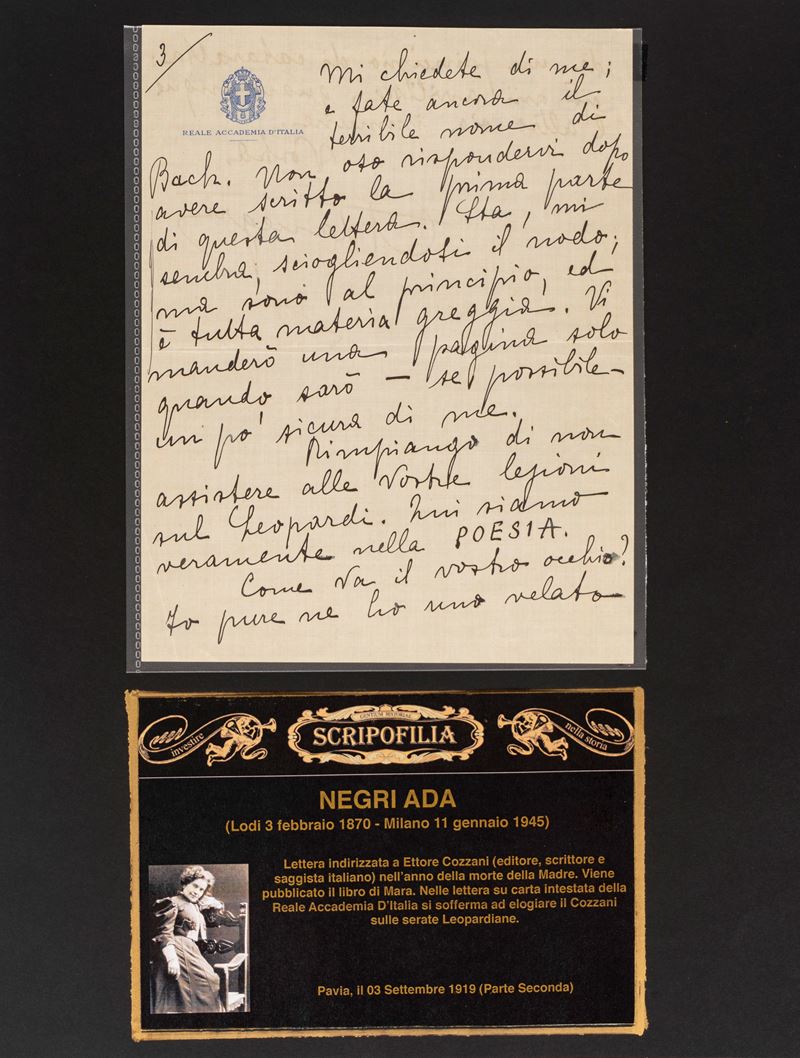 3/
REALE ACCADEMIA D'ITALIA
Mi chiedete di me;
e fate ancora il
terribile nome di
Bach. Non oso rispondervi dopo
avere scritto la prima parte
di questa lettera. Sta, mi
sembra, sciogliendosi il nodo;
ma sono al principio, ed
è tutta materia greggia. Vi
manderò una pagina solo
quando sarò — se possibile —
un po' sicura di me.
Rimpiango di non
assistere alle Vostre lezioni
sul Leopardi. Qui siamo
veramente nella POESIA.
Come va il vostro occhio?
Io pure ne ho uno velato
GENTIUM HISTORIAE
investire
SCRIPOFILIA
nella storia
NEGRI ADA
(Lodi 3 febbraio 1870 - Milano 11 gennaio 1945)
Lettera indirizzata a Ettore Cozzani (editore, scrittore e
saggista italiano) nell'anno della morte della Madre. Viene
pubblicato il libro di Mara. Nelle lettera su carta intestata della
Reale Accademia D'Italia si sofferma ad elogiare il Cozzani
sulle serate Leopardiane.
Pavia, il 03 Settembre 1919 (Parte Seconda)